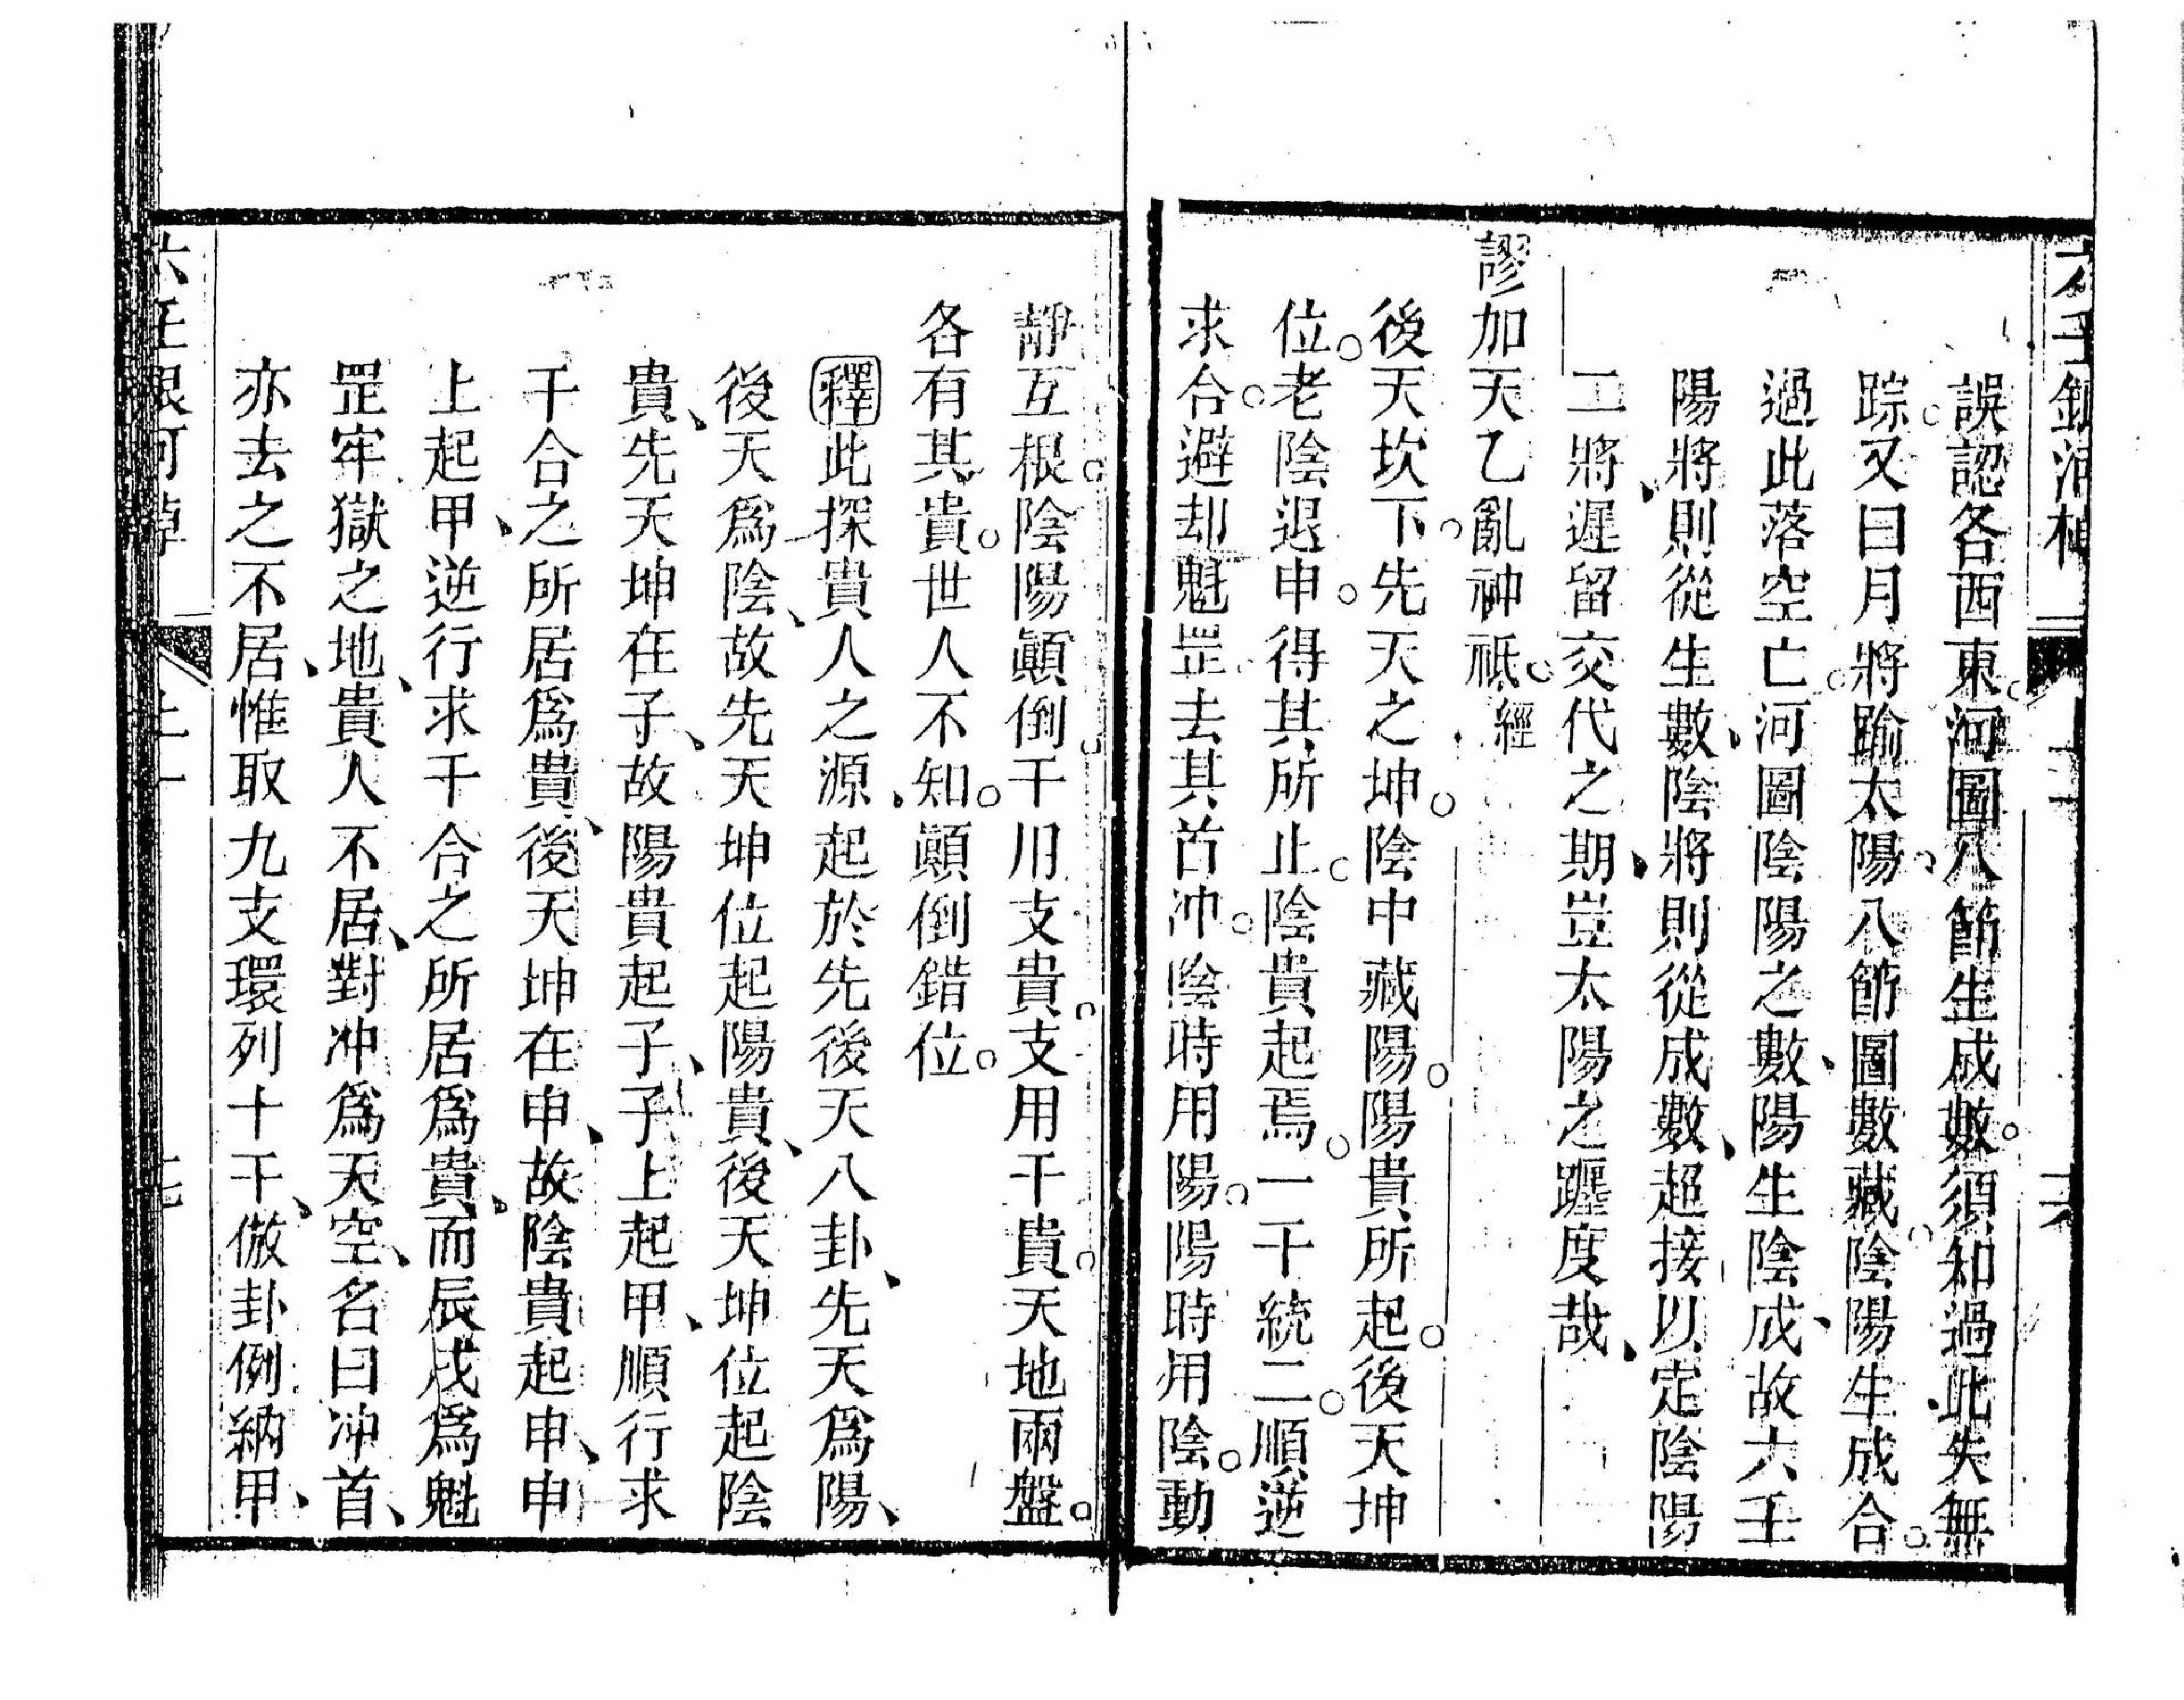 誤認各西東河圖八節生成數須知過此失無
踪又曰月將踰太陽八節圖數藏陰陽生成合
過此落空亡河圖陰陽之數陽生陰成故六壬
陽將則從生數陰將則從成數超接以定陰陽
二將遲留交代之期豈太陽之躔度哉
謬加天乙亂神祇經
後天坎下先天之坤陰中藏陽陽貴所起後天坤
位老陰退申得其所止陰貴起焉一干統二順逆
求合避却魁罡去其首沖陰時用陽陽時用陰動
靜互根陰陽顚倒干用支貴支用干貴天地兩盤
各有其貴世人不知顚倒錯位
釋此探貴人之源起於先後天八卦先天爲陽
後天爲陰故先天坤位起陽貴後天坤位起陰
貴先天坤在子故陽貴起子子上起甲順行求
干合之所居爲貴後天坤在申故陰貴起申申
上起甲逆行求干合之所居爲貴而辰戌爲魁
罡牢獄之地貴人不居對冲爲天空名曰冲首
亦去之不居惟取九支環列十干倣卦例納甲